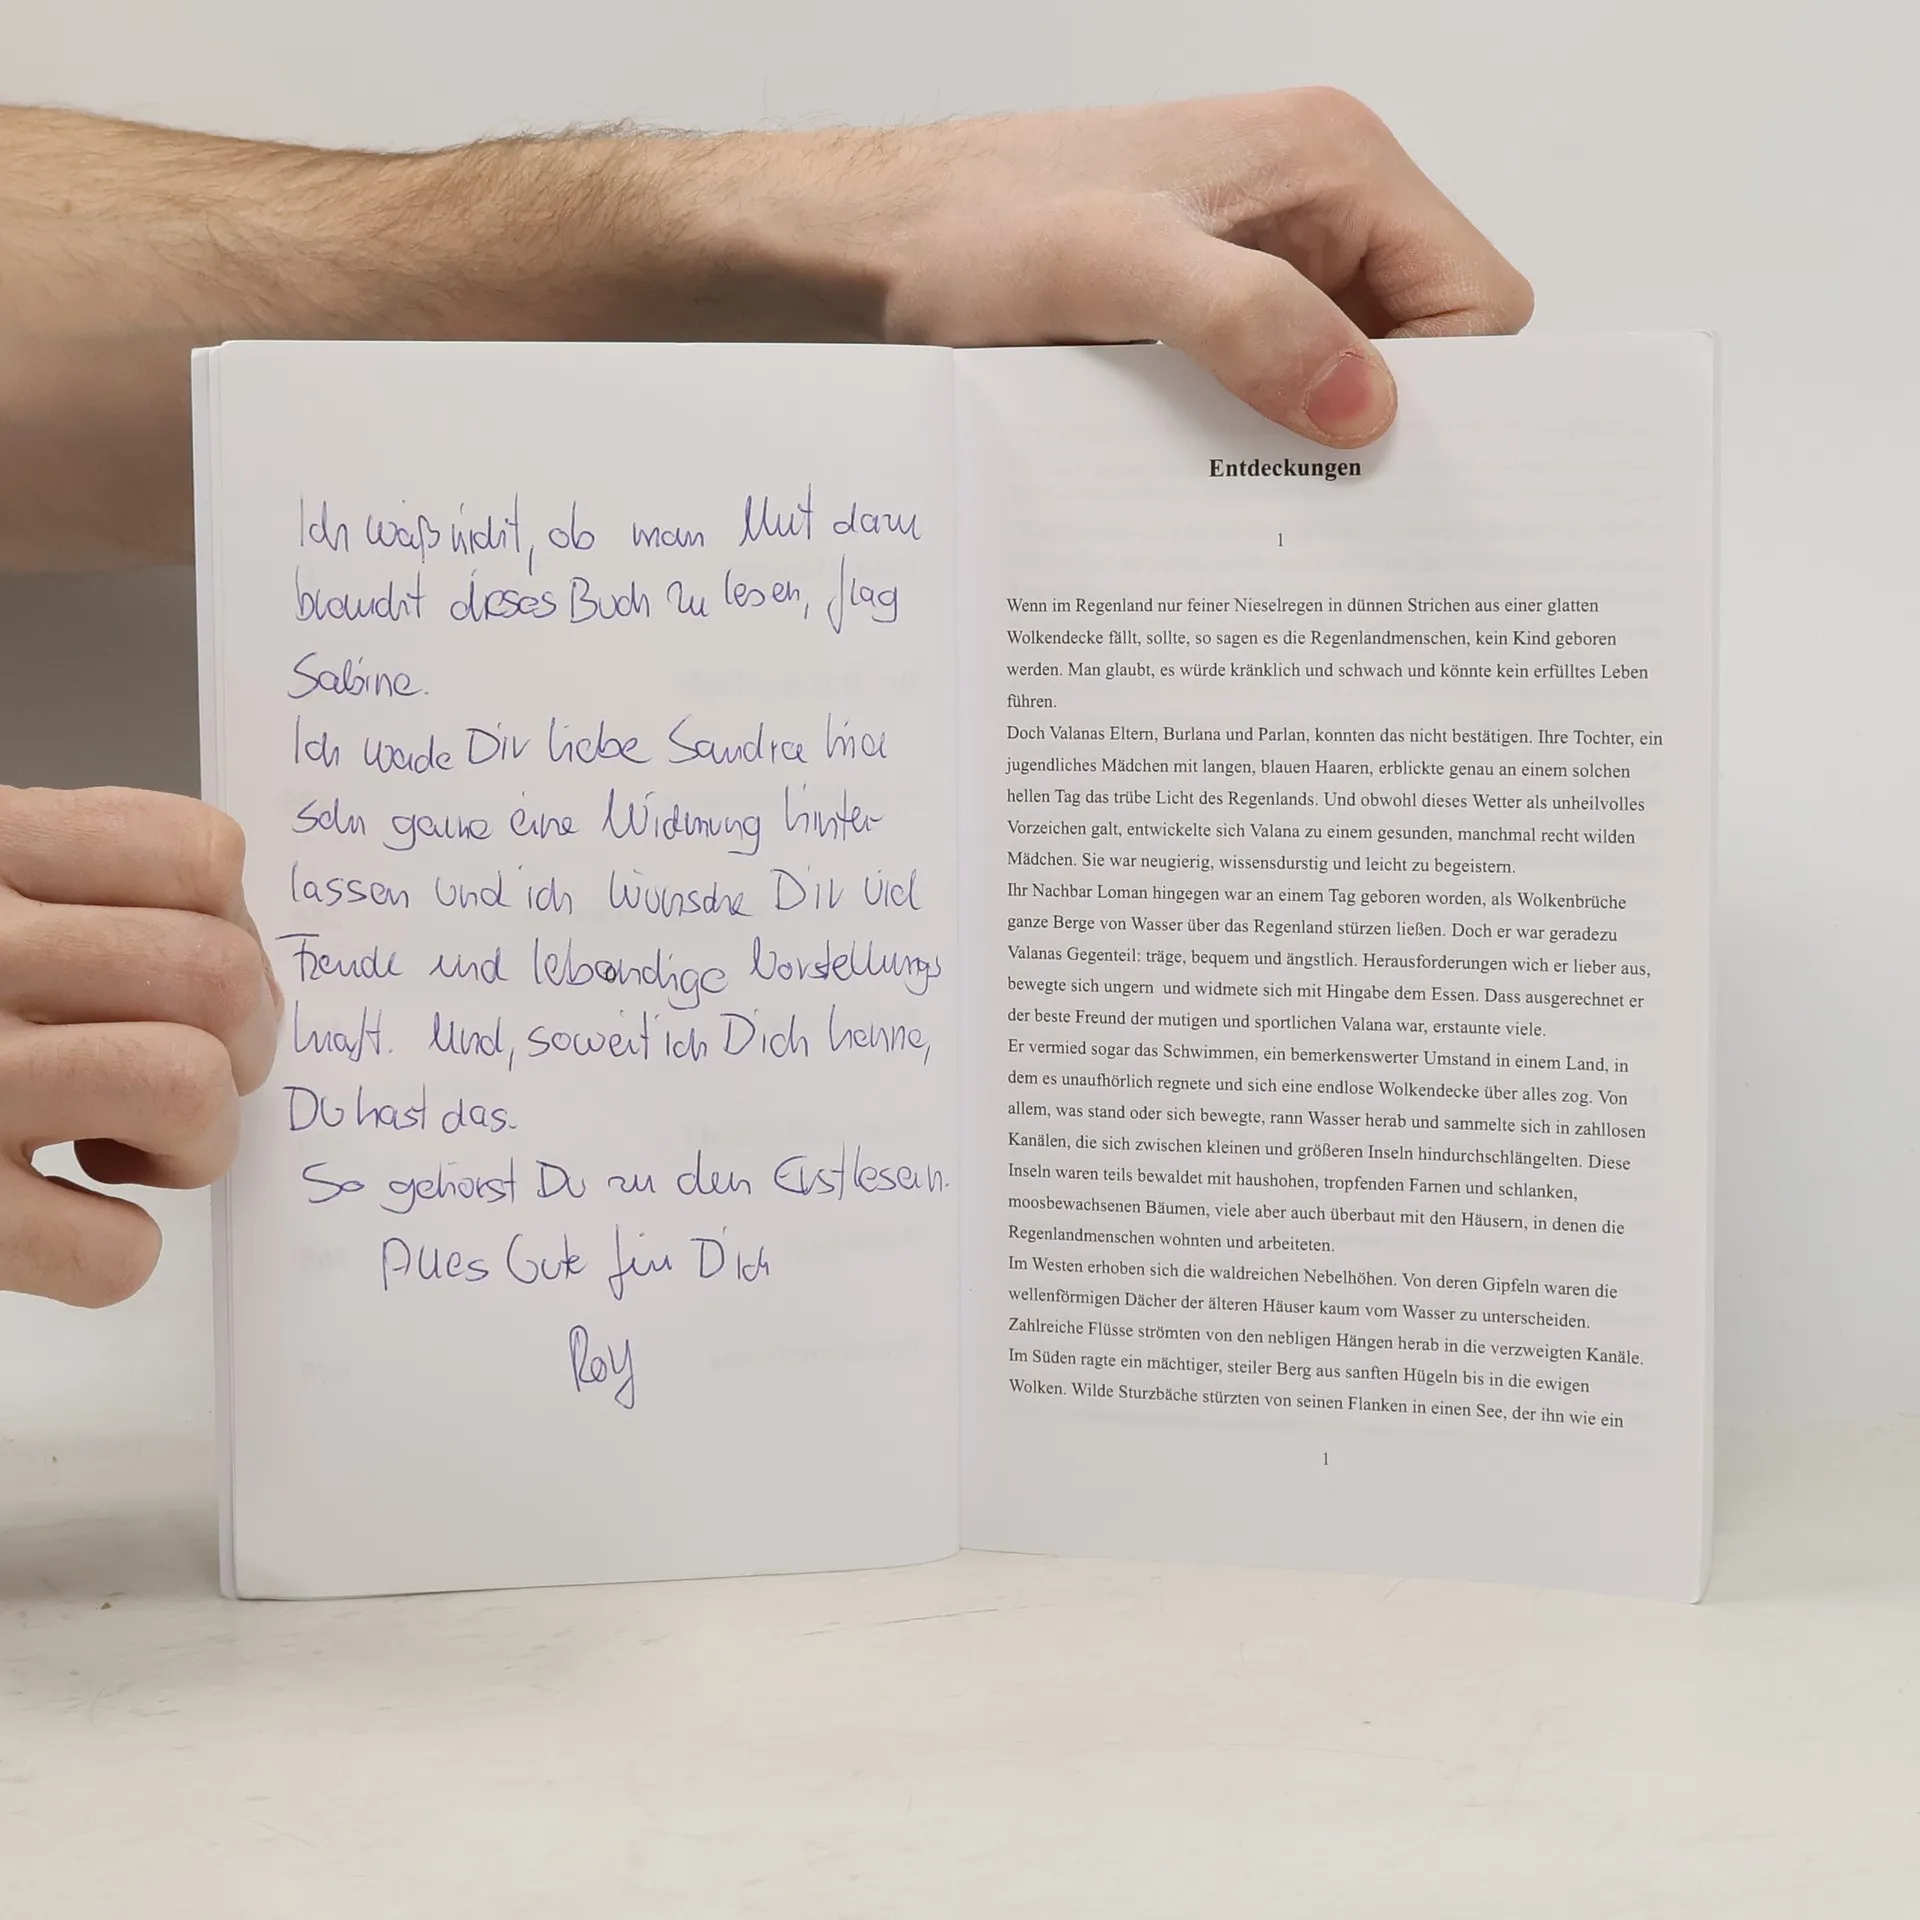 Ich weiß nicht, ob man Mut dazu
braucht dieses Buch zu lesen, frag
Sabine.
Ich werde Dir liebe Sandra hier
sehr gerne eine Widmung hinter-
lassen und ich wünsche Dir viel
Freude und lebendige Vorstellungs
kraft. Und, soweit ich Dich kenne,
Du hast das.
So gehörst Du zu den Erstlesern.
Alles Gute für Dich
Roy
Entdeckungen
1
Wenn im Regenland nur feiner Nieselregen in dünnen Strichen aus einer glatten
Wolkendecke fällt, sollte, so sagen es die Regenlandmenschen, kein Kind geboren
werden. Man glaubt, es würde kränklich und schwach und könnte kein erfülltes Leben
führen.
Doch Valanas Eltern, Burlana und Parlan, konnten das nicht bestätigen. Ihre Tochter, ein
jugendliches Mädchen mit langen, blauen Haaren, erblickte genau an einem solchen
hellen Tag das trübe Licht des Regenlands. Und obwohl dieses Wetter als unheilvolles
Vorzeichen galt, entwickelte sich Valana zu einem gesunden, manchmal recht wilden
Mädchen. Sie war neugierig, wissensdurstig und leicht zu begeistern.
Ihr Nachbar Loman hingegen war an einem Tag geboren worden, als Wolkenbrüche
ganze Berge von Wasser über das Regenland stürzen ließen. Doch er war geradezu
Valanas Gegenteil: träge, bequem und ängstlich. Herausforderungen wich er lieber aus,
bewegte sich ungern und widmete sich mit Hingabe dem Essen. Dass ausgerechnet er
der beste Freund der mutigen und sportlichen Valana war, erstaunte viele.
Er vermied sogar das Schwimmen, ein bemerkenswerter Umstand in einem Land, in
dem es unaufhörlich regnete und sich eine endlose Wolkendecke über alles zog. Von
allem, was stand oder sich bewegte, rann Wasser herab und sammelte sich in zahllosen
Kanälen, die sich zwischen kleinen und größeren Inseln hindurchschlängelten. Diese
Inseln waren teils bewaldet mit haushohen, tropfenden Farnen und schlanken,
moosbewachsenen Bäumen, viele aber auch überbaut mit den Häusern, in denen die
Regenlandmenschen wohnten und arbeiteten.
Im Westen erhoben sich die waldreichen Nebelhöhen. Von deren Gipfeln waren die
wellenförmigen Dächer der älteren Häuser kaum vom Wasser zu unterscheiden.
Zahlreiche Flüsse strömten von den nebligen Hängen herab in die verzweigten Kanäle.
Im Süden ragte ein mächtiger, steiler Berg aus sanften Hügeln bis in die ewigen
Wolken. Wilde Sturzbäche stürzten von seinen Flanken in einen See, der ihn wie ein
1